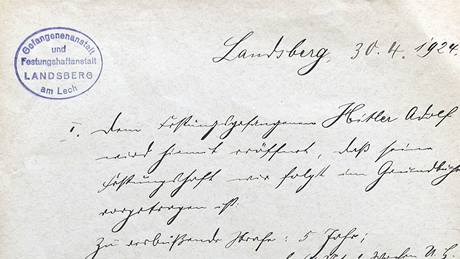 Gefangenenanstalt
und
Festungshaftanstalt
LANDSBERG
am Lech
Landsberg, 30. 4. 1924.
I. Dem Festungsgefangenen Hitler Adolf
wird hiemit eröffnet, daß seine
Festungshaft wie folgt im Grundbuche
vorgetragen ist
Zu verbüßende Strafe: 5 Jahr;